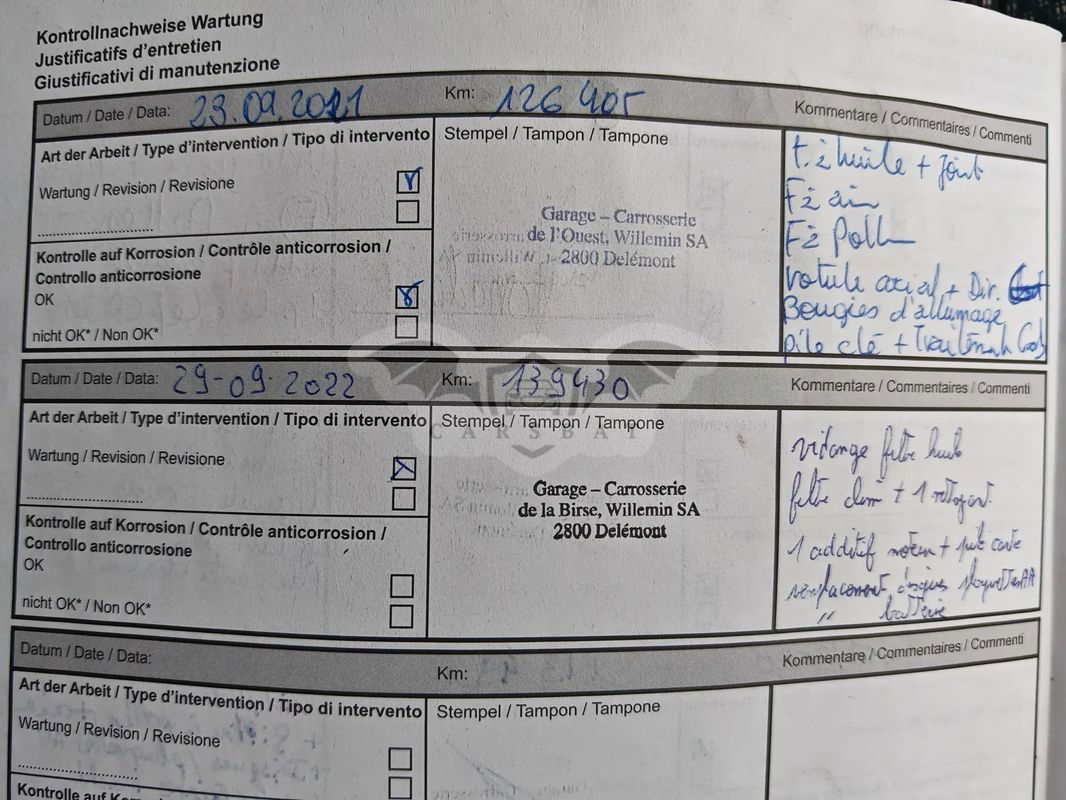 Kontrollnachweise Wartung
Justificatifs d'entretien
Giustificativi di manutenzione
Datum / Date / Data: 23.09.2021 Km: 126 405 Kommentare / Commentaires / Commenti
Art der Arbeit / Type d'intervention / Tipo di intervento Stempel / Tampon / Tampone
Wartung / Revision / Revisione
Kontrolle auf Korrosion / Contrôle anticorrosion /
Controllo anticorrosione
OK
nicht OK* / Non OK*
Garage – Carrosserie
de l'Ouest, Willemin SA
2800 Delémont
F. à huile + Joint
F à air
F à Poll
rotule axial + Dir.
Bougies d'allumage
pile clé +
Datum / Date / Data: 29-09-2022 Km: 139430 Kommentare / Commentaires / Commenti
Art der Arbeit / Type d'intervention / Tipo di intervento Stempel / Tampon / Tampone
Wartung / Revision / Revisione
Kontrolle auf Korrosion / Contrôle anticorrosion /
Controllo anticorrosione
OK
nicht OK* / Non OK*
CARSBAT
Garage – Carrosserie
de la Birse, Willemin SA
2800 Delémont
vidange filtre huile
filtre + 1
1 additif moteur +
remplacement disques plaquettes
" batterie
Datum / Date / Data: Km: Kommentare / Commentaires / Commenti
Art der Arbeit / Type d'intervention / Tipo di intervento Stempel / Tampon / Tampone
Wartung / Revision / Revisione